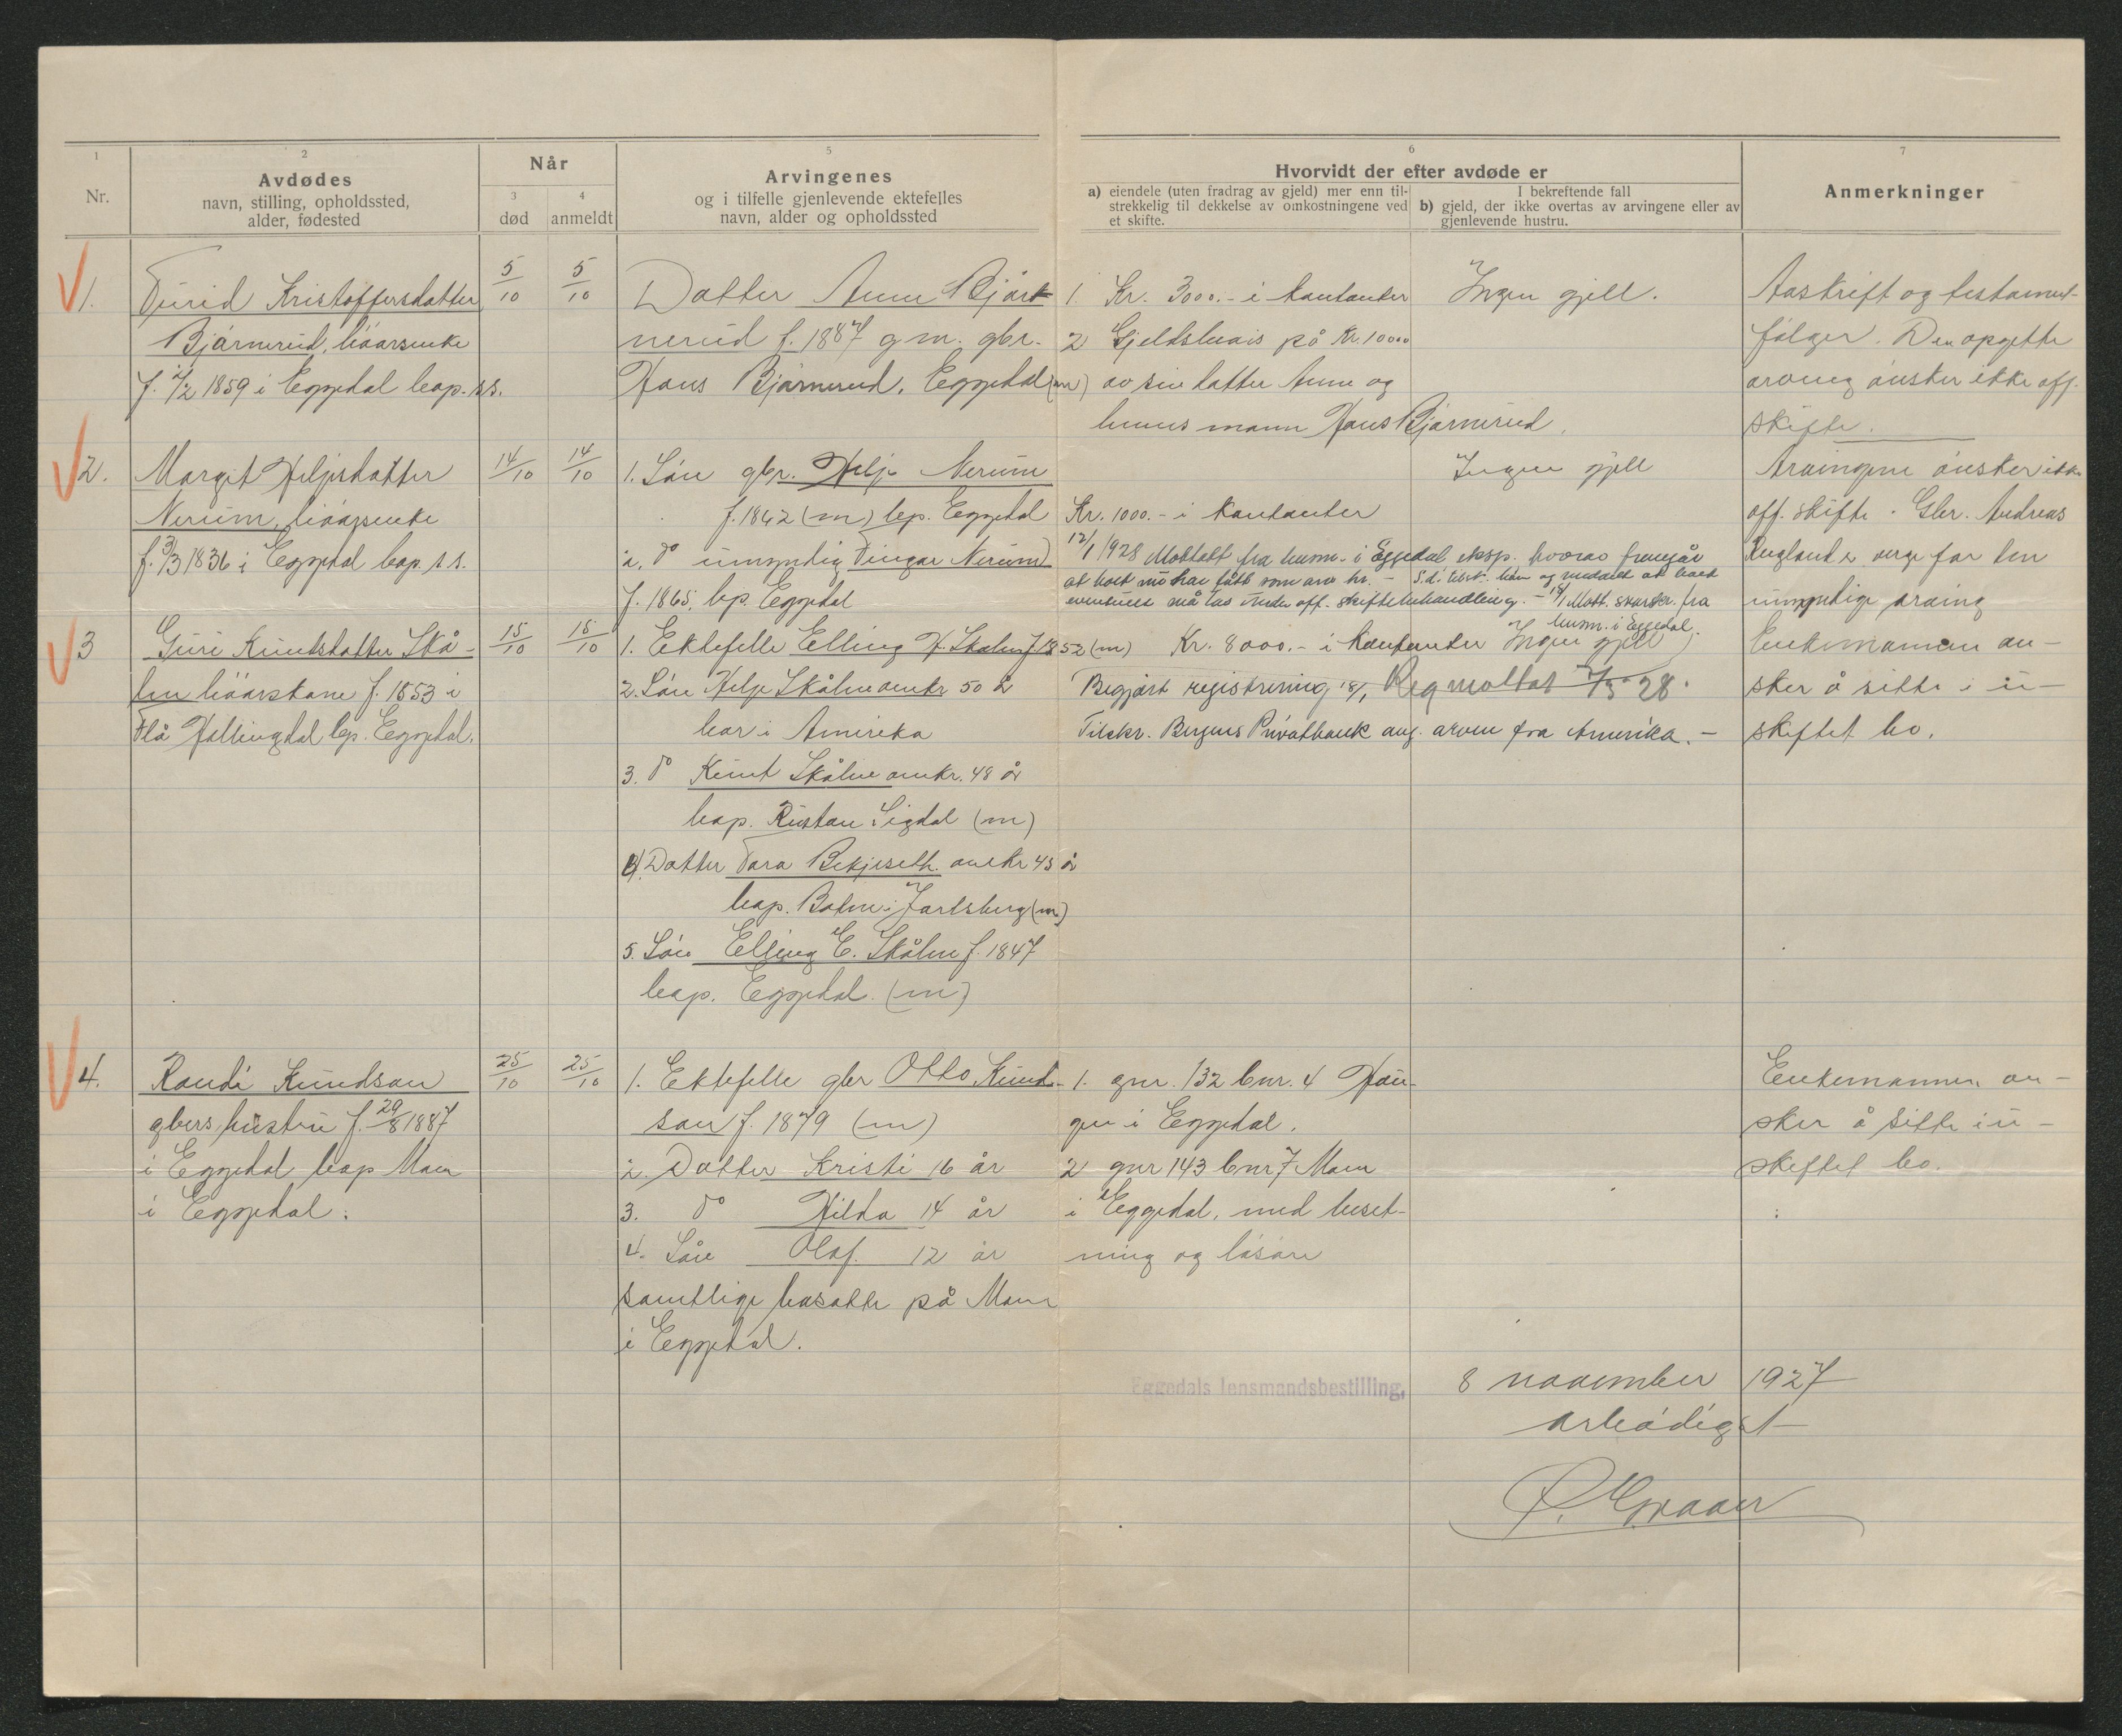 1
Nr.
2
Avdødes
navn, stilling, opholdssted,
alder, fødested
Når
3
død
4
anmeldt
5
Arvingenes
og i tilfelle gjenlevende ektefelles
navn, alder og opholdssted
6
Hvorvidt der efter avdøde er
a) eiendele (uten fradrag av gjeld) mer enn til-
strekkelig til dekkelse av omkostningene ved
et skifte.
I bekreftende fall
b) gjeld, der ikke overtas av arvingene eller av
gjenlevende hustru.
7
Anmerkninger
1.
Turid Kristoffersdatter
Bjørnerud, livørsenke
f. 1859 i Eggedal bop. s.s.
5/10
5/10
Datter Anne Bjør
nerud f. 1887 g. m. gbr.
Hans Bjørnerud, Eggedal (m)
1. Kr. 3000.- i kontanter
2 Gjeldsbevis på Kr. 10000
av sin datter Anne og
hennes mann Hans Bjørnerud.
Ingen gjell.
Avskrift og testament
følger. Den opgitte
arving ønsker ikke off.
skifte.
2.
Margit Heljesdatter
Nerum, livørsenke
f. 9/3 1836 i Eggedal bop. s.s.
14/10
14/10
1. Søn gbr. Helje Nerum
f. 1862 (m) bop. Eggedal
2. do umyndig Tingar Nerum
f. 1865, bop. Eggedal
Kr. 1000.- i kontanter
12/1 1928 Mottatt fra lensm. i Eggedal eksp. hvorav fremgår
at boet må ha fått som arv kr. -
eventuelt må tas under off. skiftebehandling. -
lensm. i Eggedal.
Ingen gjell
Arvingene ønsker ikke
off. skifte. Gbr. Andreas
Rugland er verge for den
umyndige arving
3
Guri Knutsdatter Skå-
len livørskone f. 1853 i
Flå Hallingdal bop. Eggedal.
15/10
15/10
1. Ektefelle Elling H. Skålen f. 1852 (m)
2. Søn Helje Skålen omkr 50 år
bor i Amerika
3. do Knut Skålen omkr. 48 år
bop. Rustan Sigdal (m)
4. Datter Tora Bekjeseth. omkr 45 år
bop. Botne i Jarlsberg (m)
5. Søn Elling E. Skålen f. 1847
bop. Eggedal. (m)
Kr. 8000.- i kontanter
Ingen gjell
Begjært registrering 18/1
Reg mottat 7/3 28.
Tilskr. Bergens Privatbank ang. arven fra Amerika. -
Enkemannen øn-
sker å sitte i u-
skiftet bo.
4.
Randi Knudsen
gbrs. hustru f. 29/8 1887
i Eggedal bop Moen
i Eggedal.
25/10
25/10
1. Ektefelle gbr Otto Knud-
sen f. 1879 (m)
2. Datter Kristi 16 år
3. do Hilda 14 år
4. Søn Olaf. 12 år
samtlige bosatte på Moen
i Eggedal.
1. gnr. 132 bnr. 4 Hau-
gen i Eggedal.
2 gnr 143 bnr 7 Moen
i Eggedal, med beset-
ning og løsøre
Enkemannen øn-
sker å sitte i u-
skiftet bo.
Eggedals lensmandsbestilling,
8 november 1927
ærbødigst